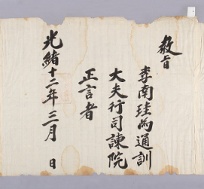 敎旨
李南珪爲通訓
大夫行司諫院
正言者
光緖十二年三月　日